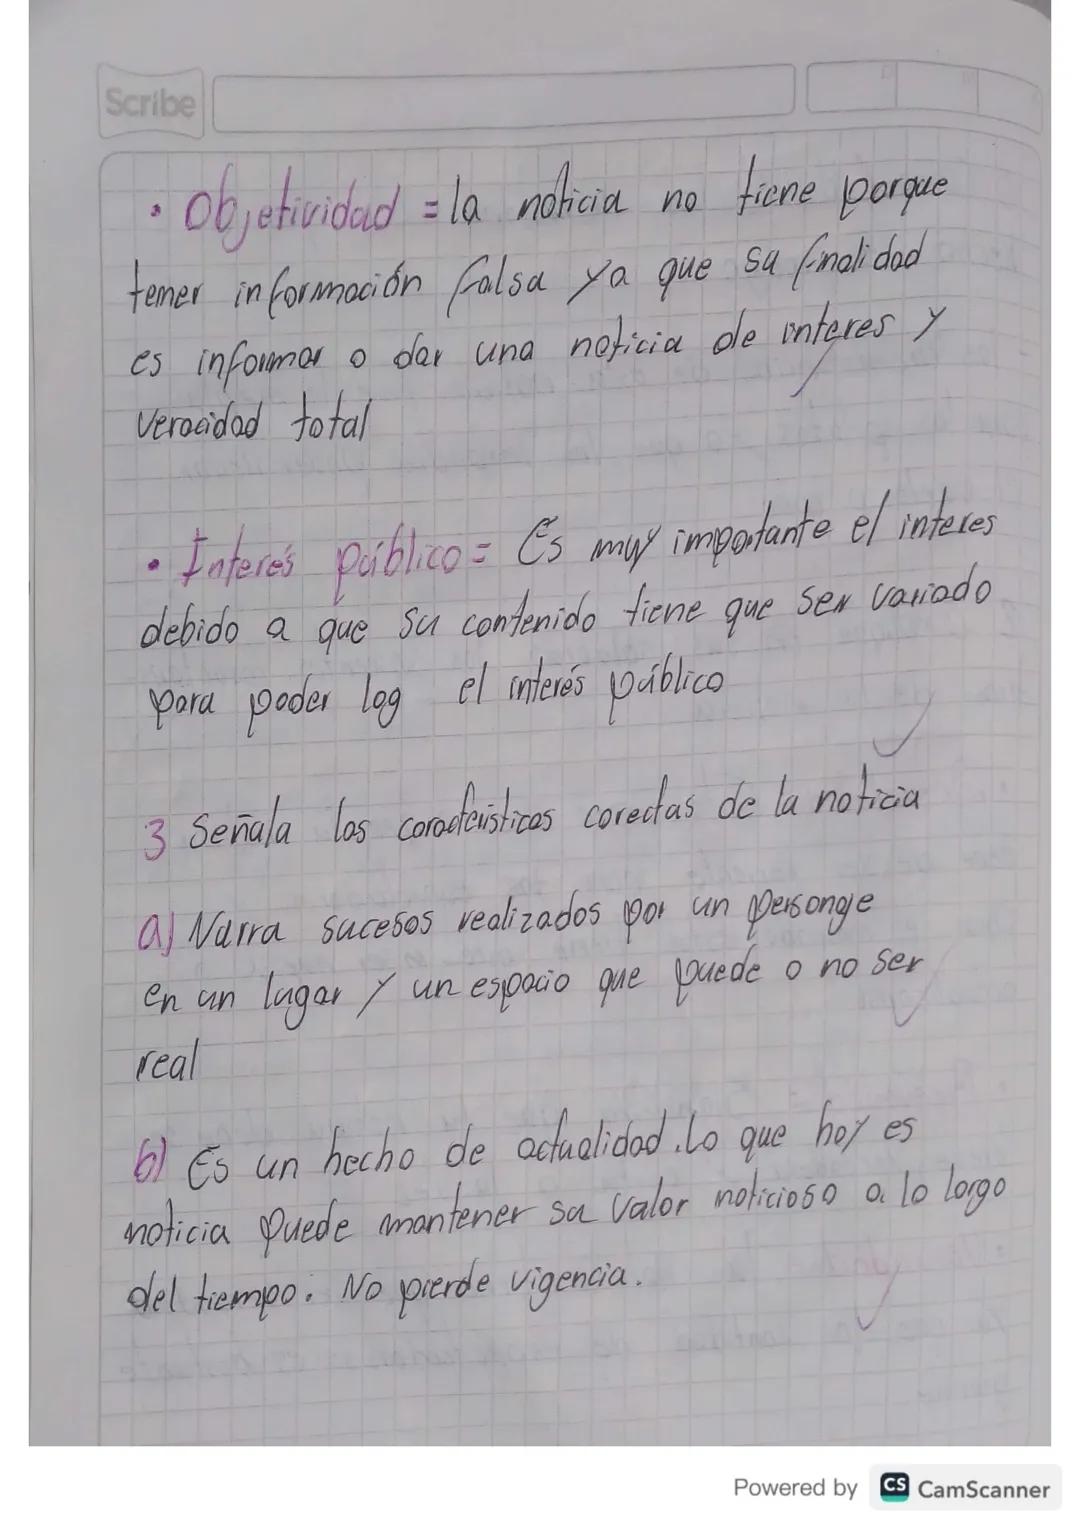 Scribe
• Objetividad = la noticia no tiene porque
temer información falsa ya que su finalidad
es informar o dar una noticia de interes y
veracidad total
• Interés público = Es muy importante el interes
debido a que su contenido tiene que ser variado
para poder log el interés público
3 Señala las caracteristicas corectas de la noticia
a) Narra sucesos realizados por un personaje
en un lugar y un espacio que puede o no ser
real
b) Es un hecho de actualidad. Lo que hoy es
noticia puede mantener su valor noticioso a lo largo
del tiempo. No pierde vigencia.
Powered by CS CamScanner